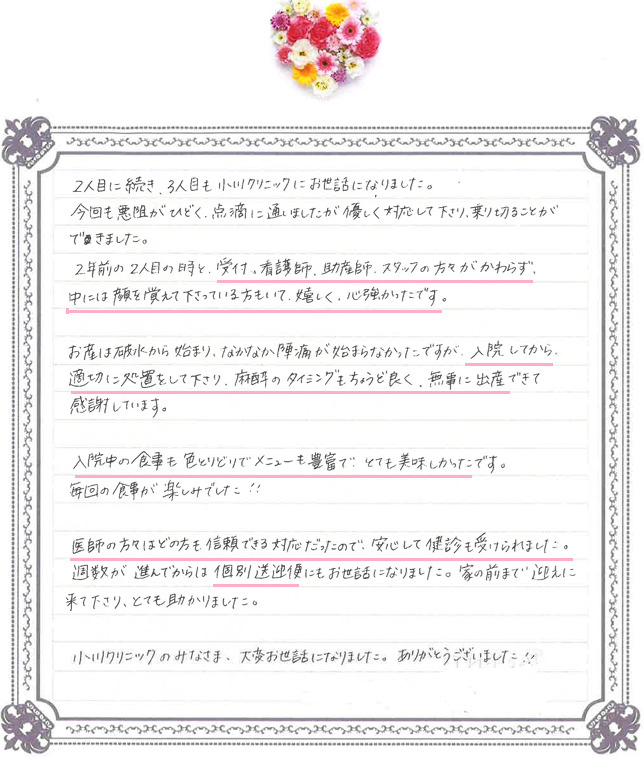 2人目に続き、3人目も小川クリニックにお世話になりました。
今回も悪阻がひどく、点滴に通いましたが優しく対応して下さり、乗り切ることが
できました。
2年前の2人目の時と、受付、看護師、助産師、スタッフの方々がかわらず、
中には顔を覚えて下さっている方もいて、嬉しく、心強かったです。
お産は破水から始まり、なかなか陣痛が始まらなかったですが、入院してから、
適切に処置をして下さり、麻酔のタイミングもちょうど良く、無事に出産できて
感謝しています。
入院中の食事も色とりどりでメニューも豊富で、とても美味しかったです。
毎回の食事が楽しみでした!!
医師の方々はどの方も信頼できる対応だったので、安心して健診も受けられました。
週数が進んでからは個別送迎便にもお世話になりました。家の前まで迎えに
来て下さり、とても助かりました。
小川クリニックのみなさま、大変お世話になりました。ありがとうございました!!